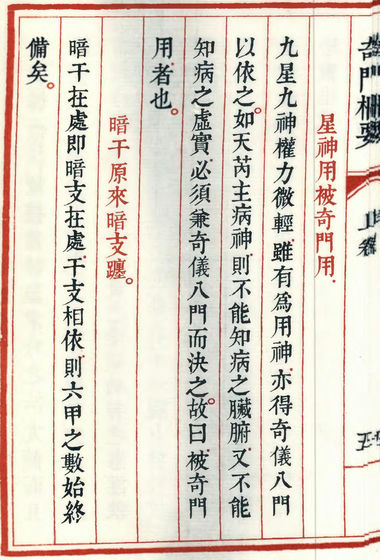 星神用被奇門用.
九星九神權力微輕.雖有為用神.亦得奇儀八門
以依之。如天芮主病神.則不能知病之臟腑.又不能
知病之虛實.必須兼奇儀八門而決之。故曰.被奇門
用者也。
暗干原來暗支躔。
暗干在處即暗支在處.干支相依.則六甲之數始終
備矣。